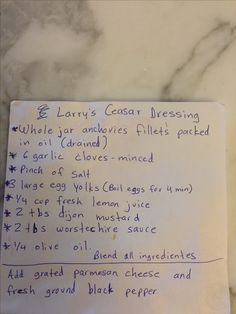 Larry's Ceasar Dressing
*Whole jar anchovies fillets packed
in oil (drained)
* 6 garlic cloves-minced
*Pinch of Salt
*3 large egg yolks (Boil eggs for 4 min)
* 1/4 cup fresh lemon juice
* 2 tbs dijon mustard
* 2 tbs worstechire sauce
* 1/4 olive oil.
Blend all ingredientes
Add grated parmesan cheese and
fresh ground black pepper